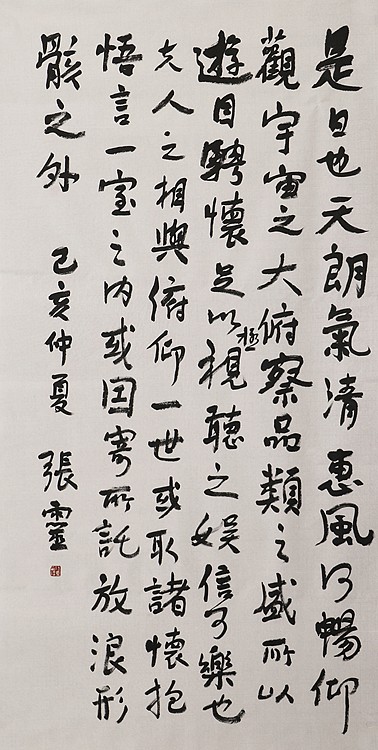 是日也天朗氣清惠風和暢仰
觀宇宙之大俯察品類之盛所以
遊目騁懷足以極視聽之娛信可樂也
夫人之相與俯仰一世或取諸懷抱
悟言一室之内或因寄所託放浪形
骸之外 己亥仲夏 張靈